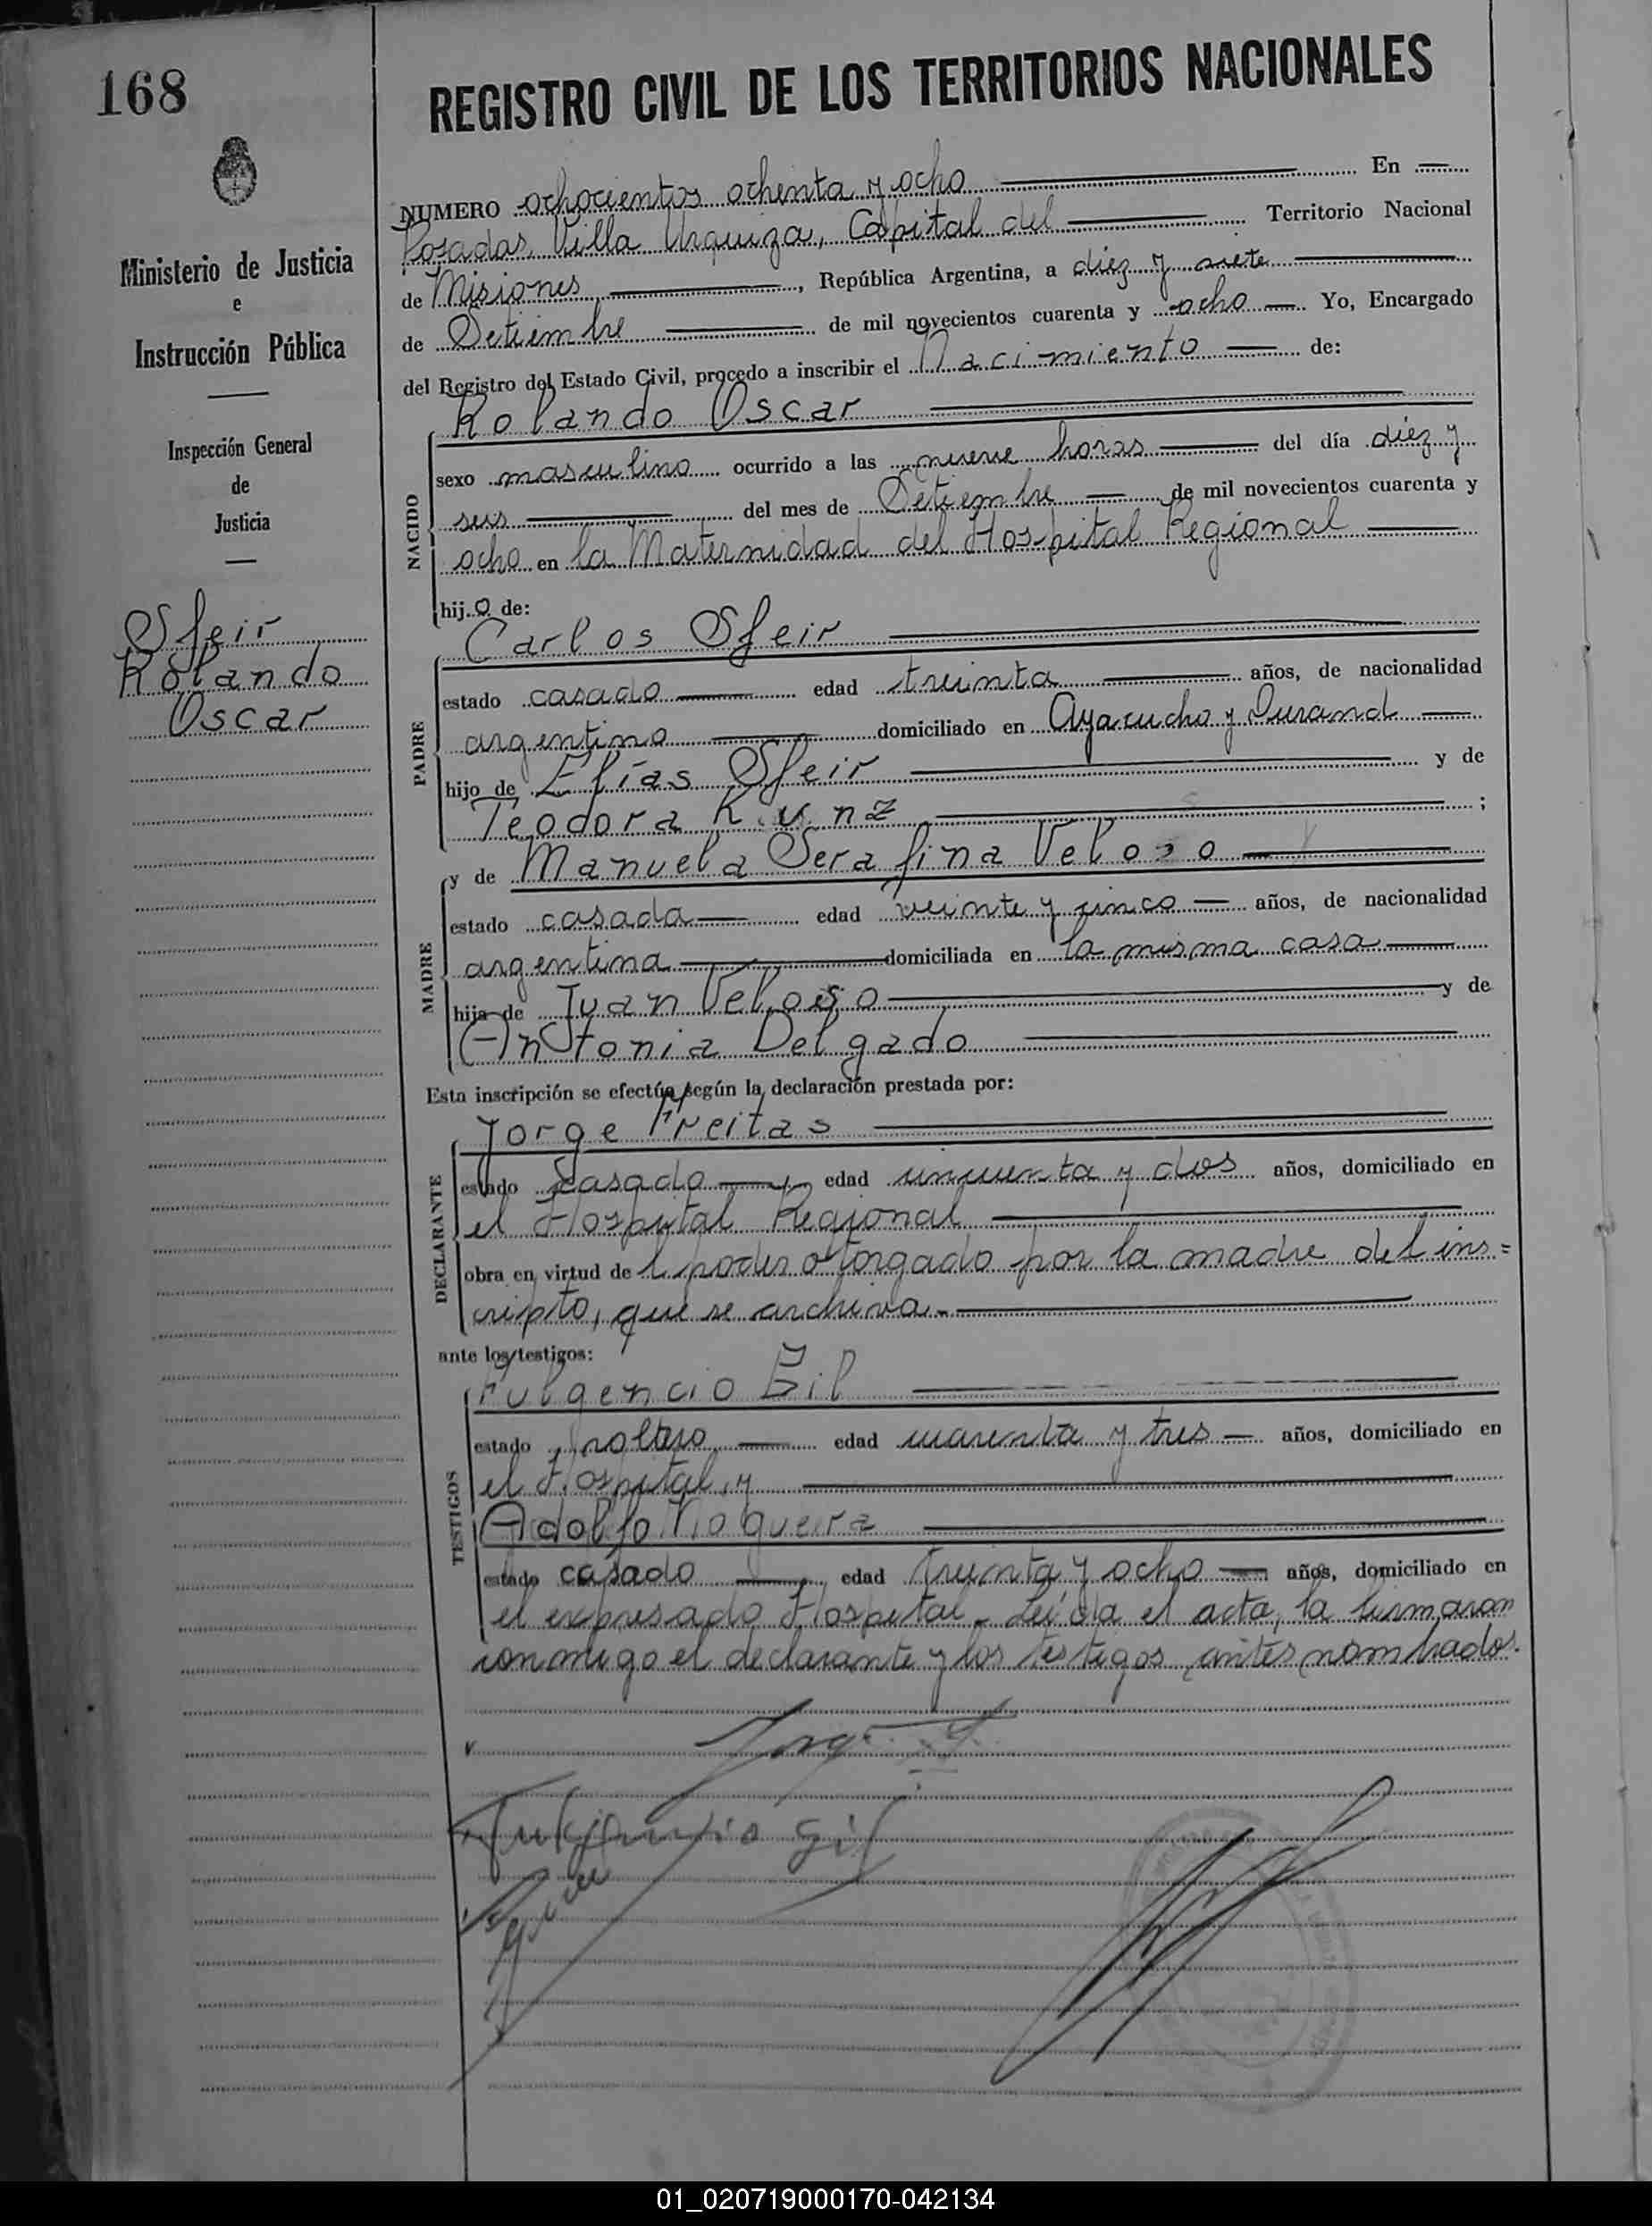 168
REGISTRO CIVIL DE LOS TERRITORIOS NACIONALES
Ministerio de Justicia
e
Instrucción Pública
Inspección General
de
Justicia
Sfeir
Rolando
Oscar
NUMERO ochocientos ochenta y ocho En
Posadas, Villa Urquiza, Capital del Territorio Nacional
de Misiones, República Argentina, a diez y siete
de Setiembre de mil novecientos cuarenta y ocho Yo, Encargado
del Registro del Estado Civil, procedo a inscribir el Nacimiento de:
NACIDO
Rolando Oscar
sexo masculino ocurrido a las nueve horas del día diez y
seis del mes de Setiembre de mil novecientos cuarenta y
ocho en la Maternidad del Hospital Regional
hijo de:
PADRE
Carlos Sfeir
estado casado edad treinta años, de nacionalidad
argentino domiciliado en Ayacucho y Durand
hijo de Elías Sfeir y de
Teodora Kunz ;
MADRE
y de Manuela Serafina Veloso
estado casada edad veinte y cinco años, de nacionalidad
argentina domiciliada en la misma casa
hija de Juan Veloso y de
Antonia Delgado
Esta inscripción se efectúa según la declaración prestada por:
DECLARANTE
Jorge Freitas
estado casado edad cincuenta y dos años, domiciliado en
el Hospital Regional
obra en virtud del poder otorgado por la madre del ins=
cripto, que se archiva.-
ante los testigos:
TESTIGOS
Fulgencio Gil
estado soltero edad cuarenta y tres años, domiciliado en
el Hospital, y
Adolfo Nogueira
estado casado edad treinta y ocho años, domiciliado en
el expresado Hospital.- Leída el acta, la firmaron
conmigo el declarante y los testigos antes nombrados.
Jorge
Fulgencio Gil
01_020719000170-042134